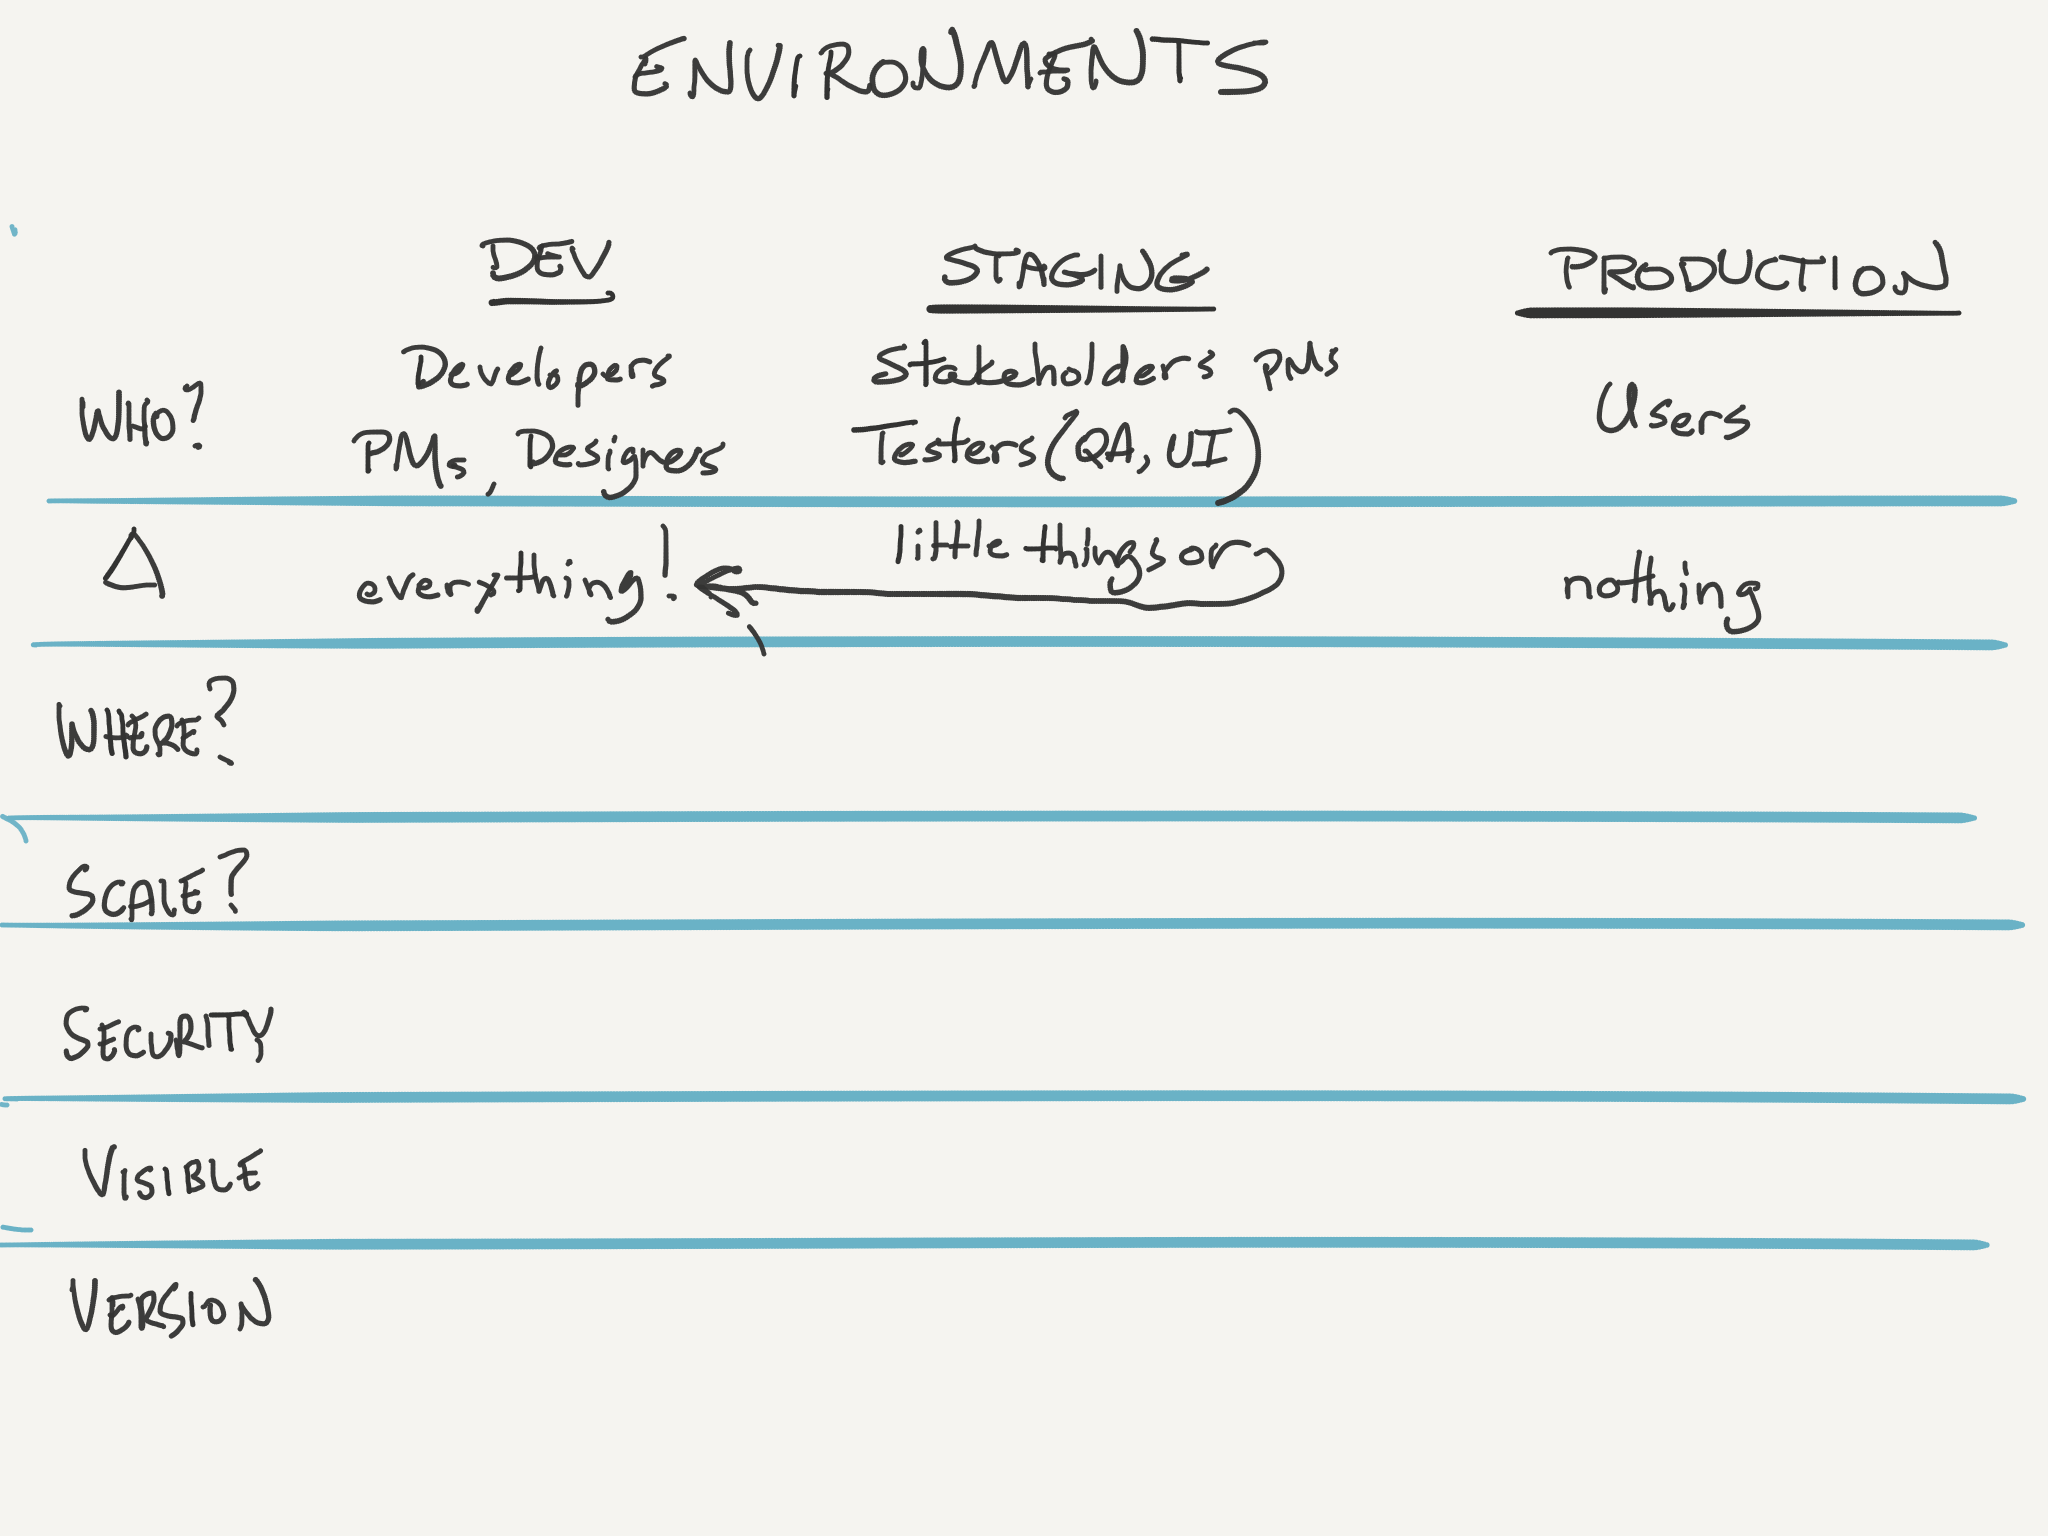 ENVIRONMENTS
DEV STAGING PRODUCTION
WHO? Developers Stakeholders PMs Users
PMs, Designers Testers (QA, UI)
Δ everything! little things or nothing
WHERE?
SCALE?
SECURITY
VISIBLE
VERSION